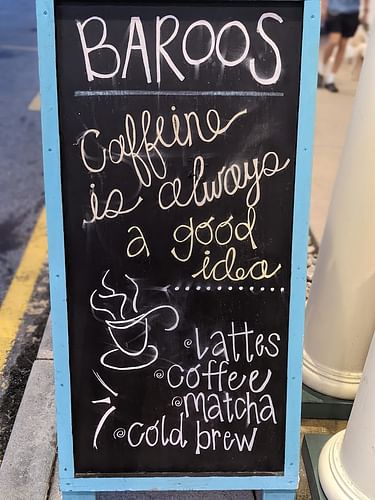 BAROOS
Caffeine
is always
a good
idea
lattes
coffee
matcha
cold brew